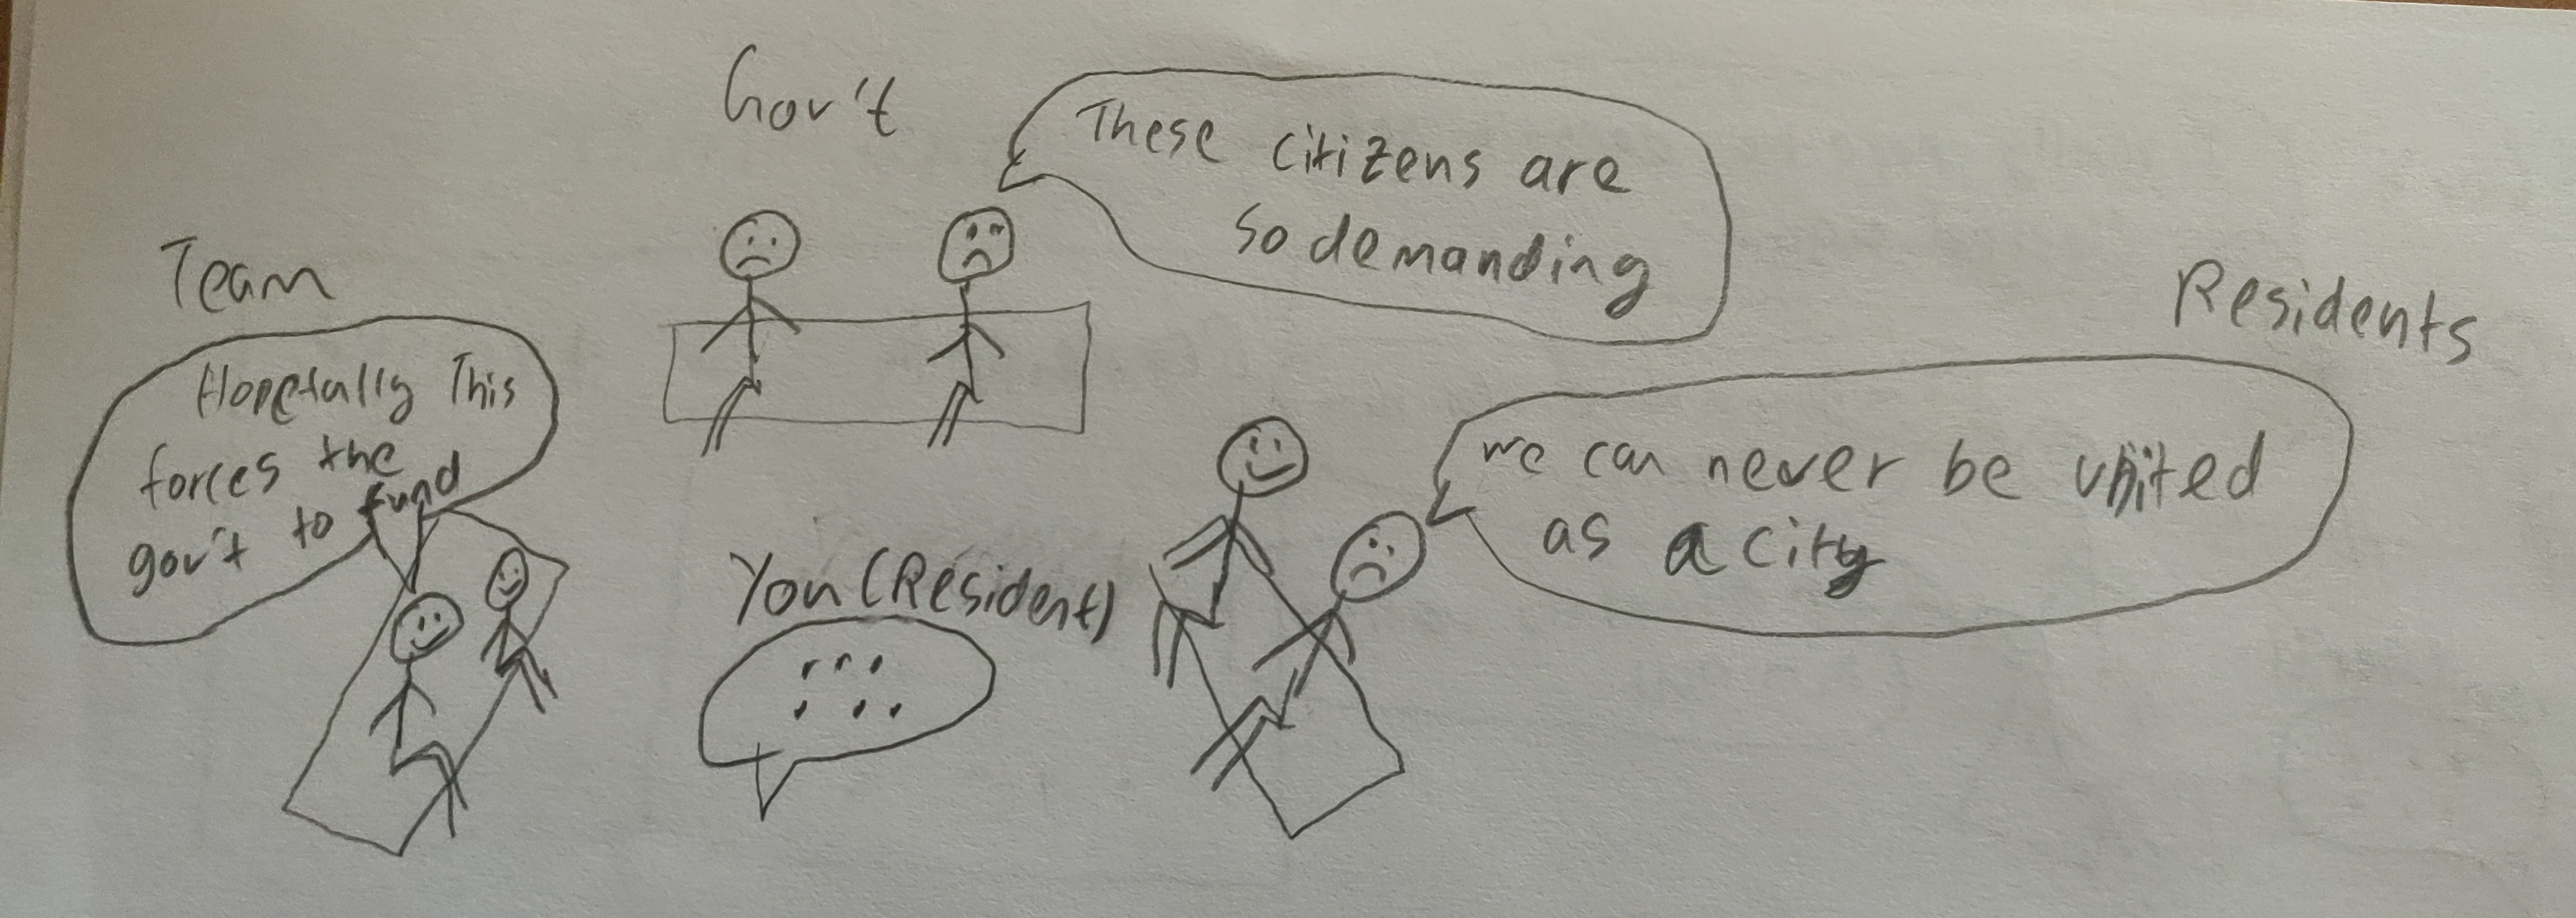 Gov't
These citizens are
so demanding
Team
Hopefully This
forces the
gov't to fund
Residents
we can never be united
as a city
You (Resident)
... ...